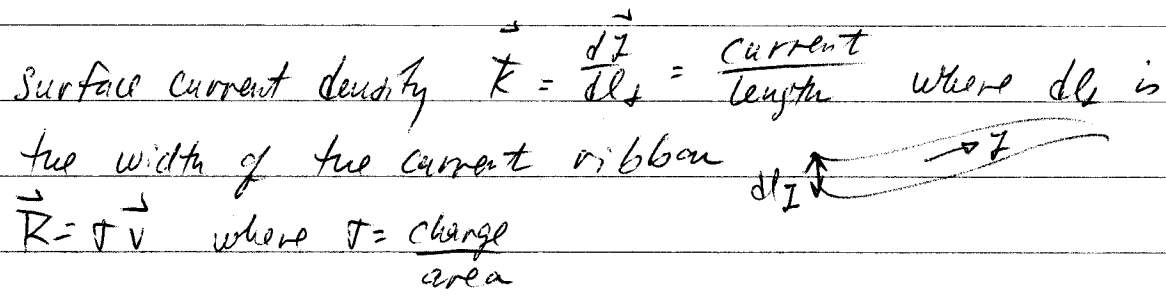 Surface current density K⃗ = dI⃗/dl⊥ = current/length where dl⊥ is
the width of the current ribbon dl⊥ → I
K⃗ = σv⃗ where σ = charge/area